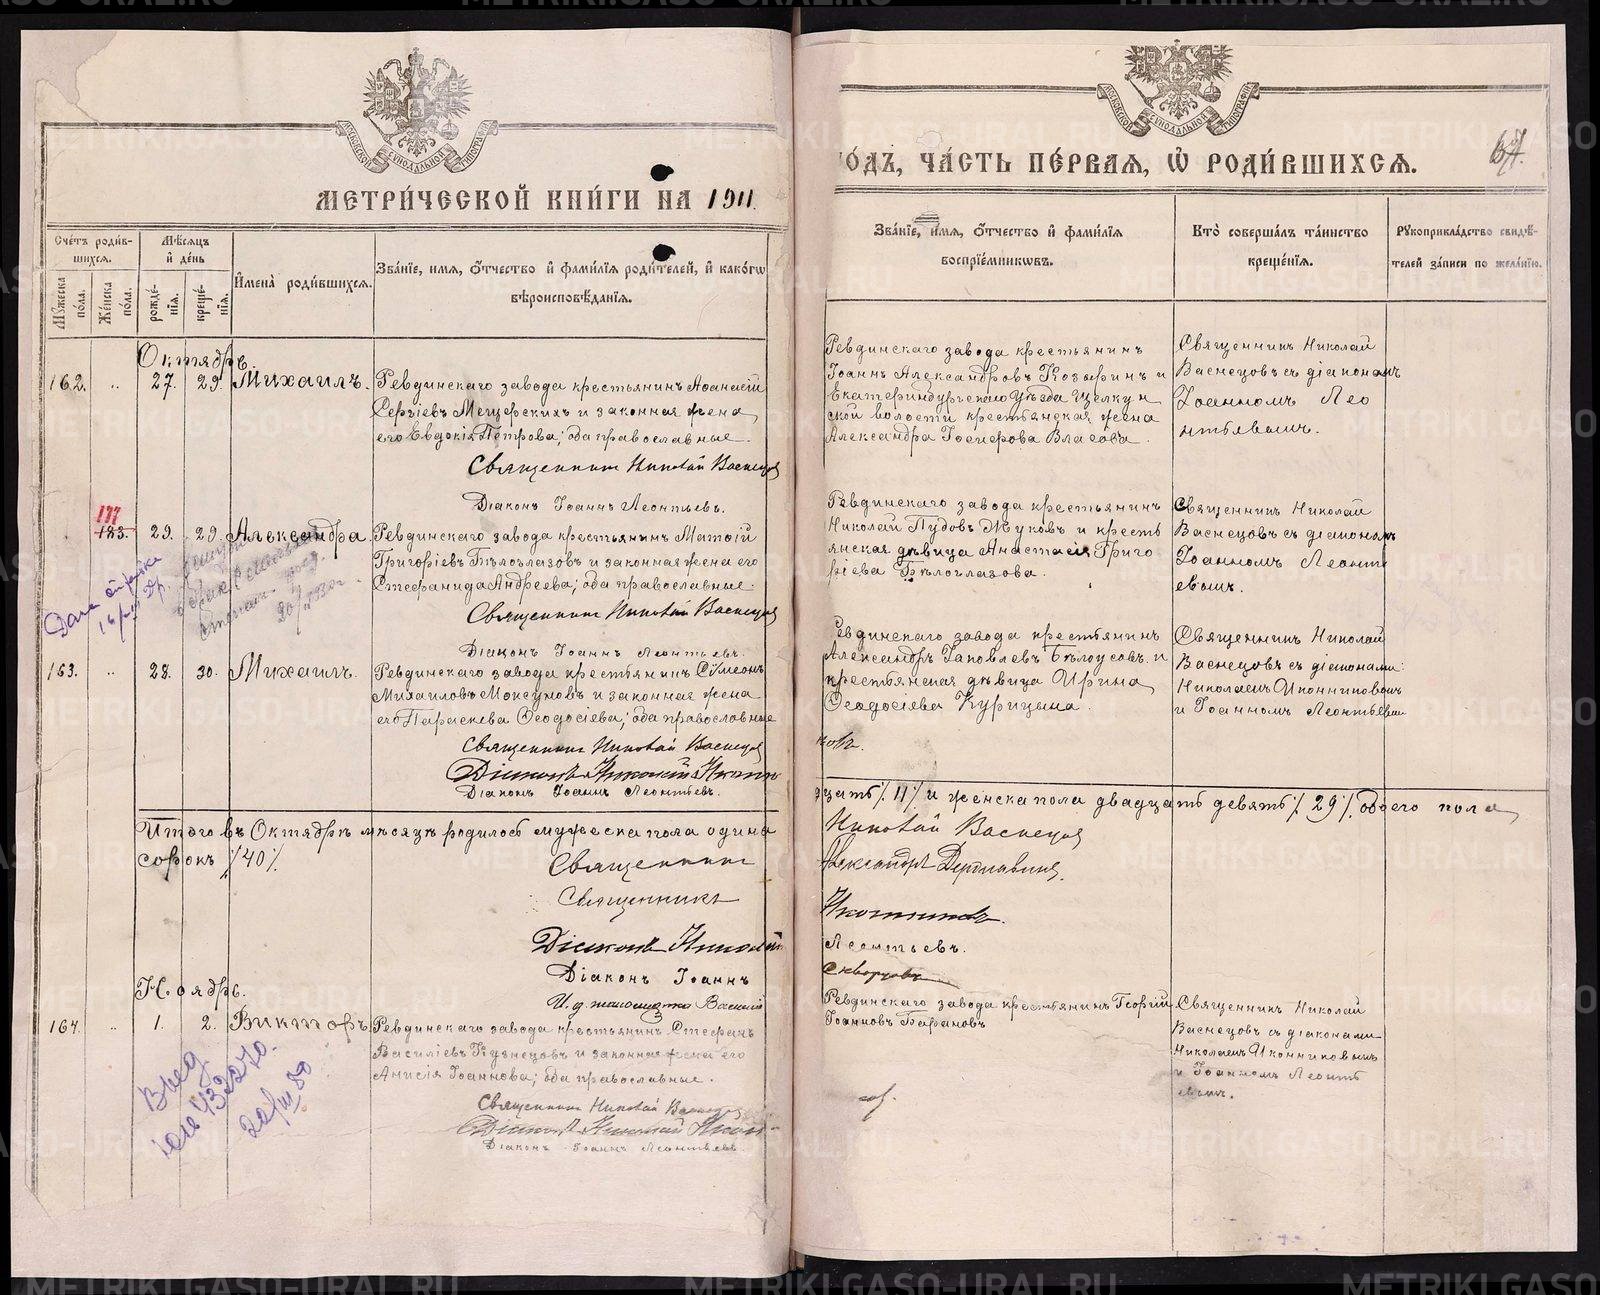 МЕТРИ́ЧЕСКОЙ КНИ́ГИ НА 1911
Сче́тъ роди́в-
шихся.
Мꙋ́жеска по́ла.
Же́нска по́ла.
Мѣ́сяцъ
и҆ де́нь
рожде́нїя.
креще́нїя.
И҆мена̀ роди́вшихся.
Зва́нїе, и҆мя, ѻ҆́тчество и҆ фами́лїя роди́телей, и҆ како́гѡ
вѣроисповѣ́данїя.
Октябрь.
162. „ 27. 29. Михаилъ.
Ревдинскаго завода крестьянинъ Аѳанасій
Сергіевъ Мещерскихъ и законная жена
его Евдокія Петрова; оба православные.
Священникъ Николай Васнецовъ
Діаконъ Іоаннъ Леонтьевъ.
177
183. 29. 29. Александра
Ревдинскаго завода крестьянинъ Матѳій
Григоріевъ Бѣлоглазовъ и законная жена его
Стефанида Андреева; оба православные.
Священникъ Николай Васнецовъ
Діаконъ Іоаннъ Леонтьевъ.
163. „ 28. 30. Михаилъ.
Ревдинскаго завода крестьянинъ Сѵмеонъ
Михаиловъ Моксуновъ и законная жена
его Параскева Ѳеодосіева; оба православные
Священникъ Николай Васнецовъ
Діаконъ Николай Иконни
Діаконъ Іоаннъ Леонтьевъ.
Итого въ Октябрѣ мѣсяцѣ родилось мужеска пола одина
сорокъ /40/.
Священникъ
Священникъ
Діаконъ Николай
Діаконъ Іоаннъ
И. д. псаломщика Василій
Ноябрь.
164. „ 1. 2. Викторъ
Ревдинскаго завода крестьянинъ Стефанъ
Василіевъ Кузнецовъ и законная жена его
Анисія Іоаннова; оба православные.
Священникъ Николай Васнецовъ
Діаконъ Николай Икон-
Діаконъ Іоаннъ Леонтьевъ.
ГО́ДЪ, ЧА́СТЬ ПЕ́РВАЯ, Ѽ РОДИ́ВШИХСЯ.
67.
Зва́нїе, и҆мя, ѻ҆́тчество и҆ фами́лїя
воспрїе́мникѡвъ.
Кто̀ соверша́лъ та́инство
креще́нїя.
Рꙋкоприкла́дство свидѣ́-
телей за́писи по жела́нїю.
Ревдинскаго завода крестьянинъ
Іоаннъ Александровъ Козыринъ и
Екатеринбургскаго Уѣзда Щелкун
ской волости крестьянская жена
Александра Іосифова Власова.
Священникъ Николай
Васнецовъ съ діаконамъ
Іоанномъ Лео
нтьевымъ.
Ревдинскаго завода крестьянинъ
Николай Пудовъ Жуковъ и кресть
янская дѣвица Анастасія Григо
ріева Бѣлоглазова.
Священникъ Николай
Васнецовъ съ діаконом
Іоанномъ Леонть
евымъ.
Ревдинскаго завода крестьянинъ
Александръ Іаковлевъ Бѣлоусовъ и
крестьянская дѣвица Ирина
Ѳеодосіева Курицына.
Священникъ Николай
Васнецовъ съ діаконами:
Николаемъ Иконниковымъ
и Іоанномъ Леонтьевым
ковъ.
дцать /11/ и женска пола двадцать девять /29/. обоего пола
Николай Васнецовъ
Александръ Державинъ.
Иконниковъ.
Леонтьевъ.
Скворцовъ
Ревдинскаго завода крестьянинъ Георгій
Іоанновъ Барановъ
Священникъ Николай
Васнецовъ съ діаконами
Николаемъ Иконниковымъ
и Іоанномъ Леонть
евымъ.
METRIKI.GASO-URAL.RU